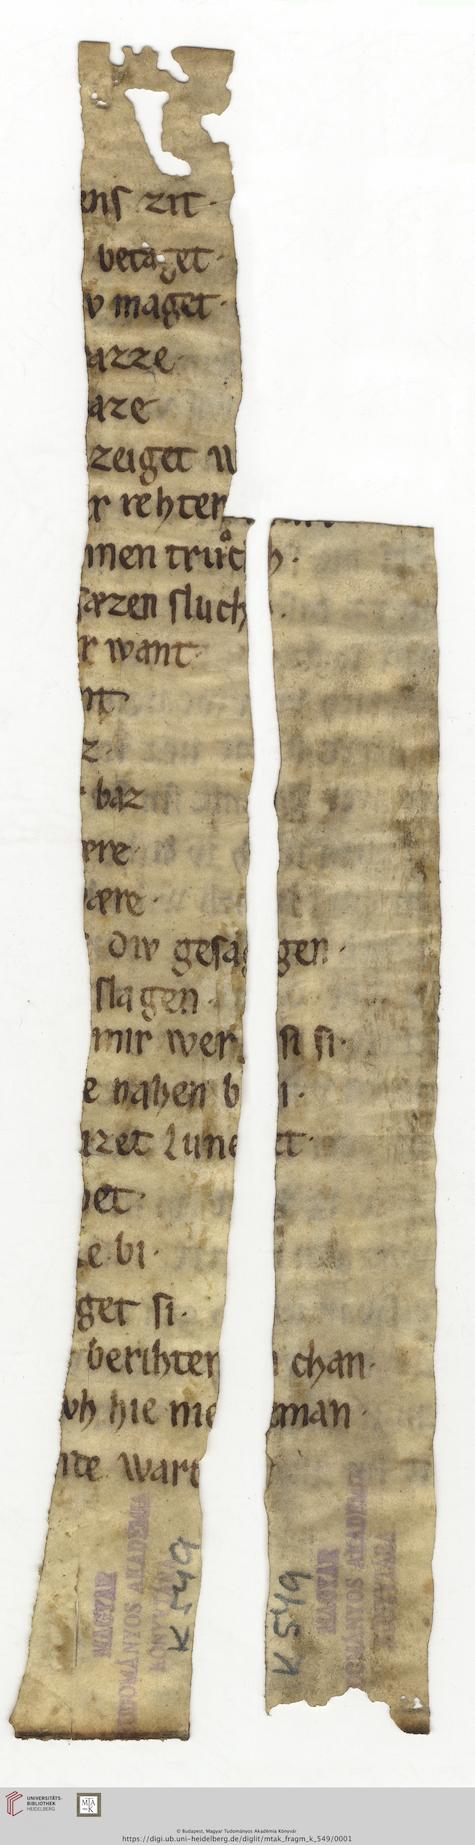 ens zit·
betaget·
v maget·
azze·
aze·
zeiget w
r rehten
nnen truͦch·
sæzen sluch
r want·
nt·
z·
baz
ere·
ære·
div gesagen·
slagen·
mir wer si si·
e nahen bi·
izet Lunet·
et·
te bi·
get si·
berihten chan·
oh hie nieman·
nte wart
MAGYAR
TUDOMÁNYOS AKADÉMIA
KÖNYVTÁRA
K 549
K 549
MAGYAR
TUDOMÁNYOS AKADÉMIA
KÖNYVTÁRA
UNIVERSITÄTS-
BIBLIOTHEK
HEIDELBERG
© Budapest, Magyar Tudományos Akadémia Könyvtár
https://digi.ub.uni-heidelberg.de/diglit/mtak_fragm_k_549/0001